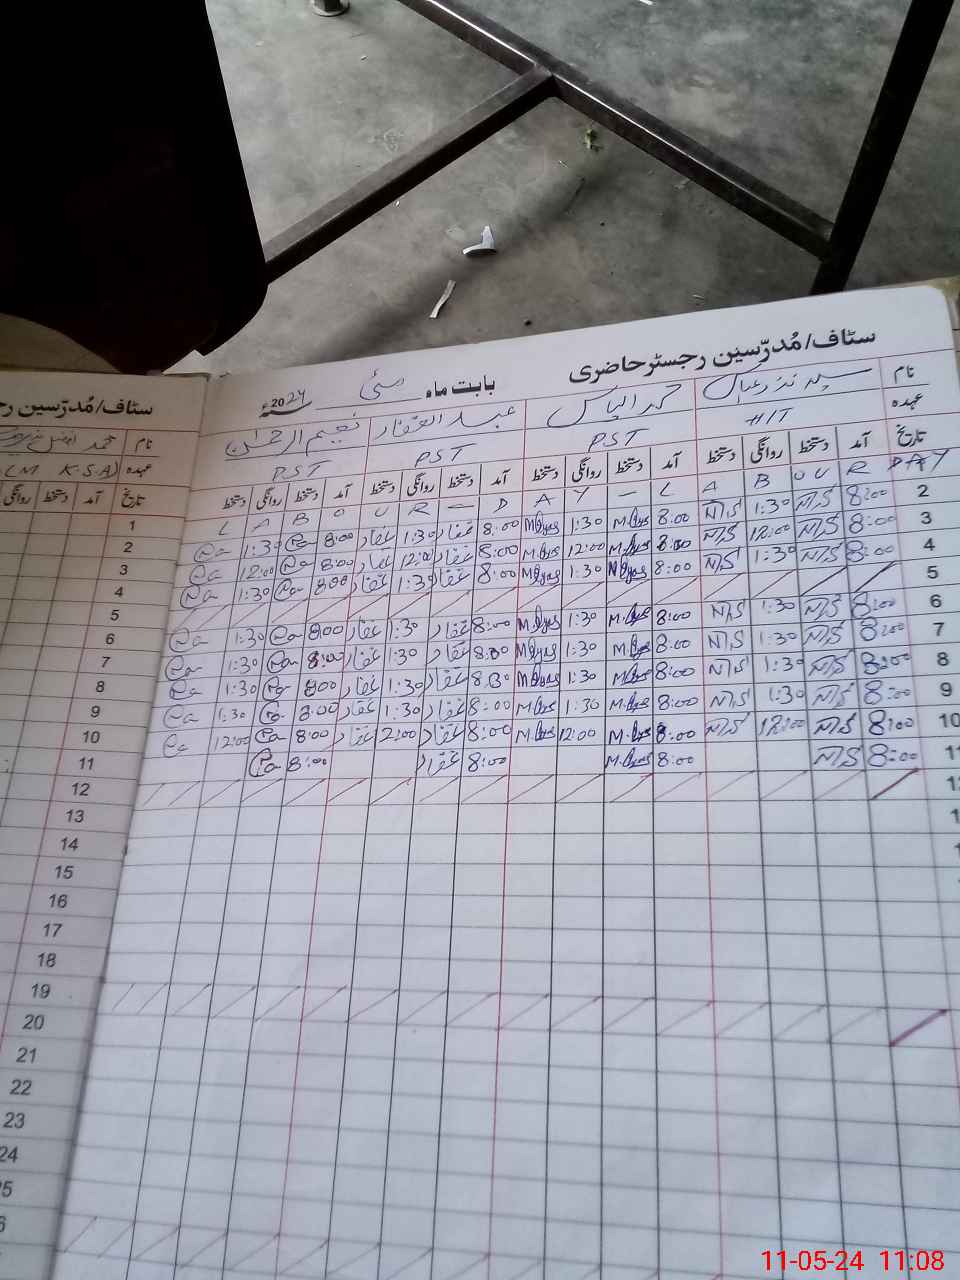 سٹاف/مُدرّسین رجسٹر حاضری بابت ماہ مئی 2024ء
نام سید نذر عباس محمد الیاس عبد الغفار نعیم الرحمٰن
عہدہ HT PST PST PST
تاریخ آمد دستخط روانگی دستخط آمد دستخط روانگی دستخط آمد دستخط روانگی دستخط آمد دستخط روانگی دستخط
L A B O U R — D A Y — L A B O U R DAY
2 8:00 N/S 1:30 N/S 8:00 M.Ilyas 1:30 M.Ilyas 8:00 غفار 1:30 غفار 8:00 1:30
3 8:00 N/S 12:00 N/S 8:00 M.Ilyas 12:00 M.Ilyas 8:00 غفار 12:00 غفار 8:00 12:00
4 8:00 N/S 1:30 N/S 8:00 M.Ilyas 1:30 M.Ilyas 8:00 غفار 1:30 غفار 8:00 1:30
5
6 8:00 N/S 1:30 N/S 8:00 M.Ilyas 1:30 M.Ilyas 8:00 غفار 1:30 غفار 8:00 1:30
7 8:00 N/S 1:30 N/S 8:00 M.Ilyas 1:30 M.Ilyas 8:00 غفار 1:30 غفار 8:00 1:30
8 8:00 N/S 1:30 N/S 8:00 M.Ilyas 1:30 M.Ilyas 8:00 غفار 1:30 غفار 8:00 1:30
9 8:00 N/S 1:30 N/S 8:00 M.Ilyas 1:30 M.Ilyas 8:00 غفار 1:30 غفار 8:00 1:30
10 8:00 N/S 12:00 N/S 8:00 M.Ilyas 12:00 M.Ilyas 8:00 غفار 2:00 غفار 8:00 12:00
11 8:00 N/S 8:00 M.Ilyas 8:00 غفار 8:00
سٹاف/مُدرّسین
نام محمد افضل
عہدہ
تاریخ آمد دستخط روانگی
1
2
3
4
5
6
7
8
9
10
11
12
13
14
15
16
17
18
19
20
21
22
23
24
25
11-05-24 11:08